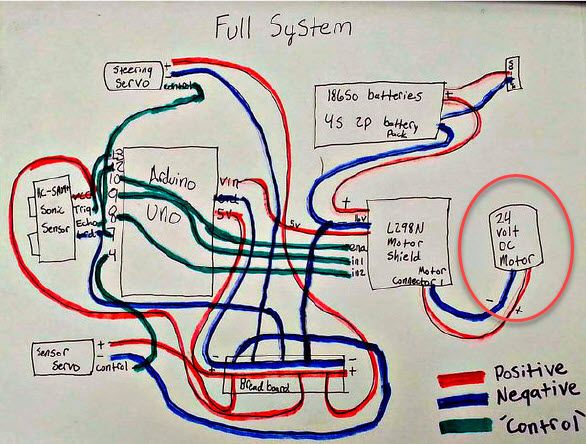 Full System
Steering
Servo
+
-
control
18650 batteries
4S 2P battery
Pack
+
-
HC-SR04
Sonic
Sensor
VCC
Trig
Echo
Grd
13
12
10
9
8
7
4
Arduino
UNO
Vin
Grnd
5V
5v
+
16v
L298N
Motor
Shield
Motor
Connector 1
ena
in1
in2
24
Volt
DC
Motor
-
+
Sensor
Servo
+
-
control
-
+
-
+
Breadboard
Positive
Negative
Control